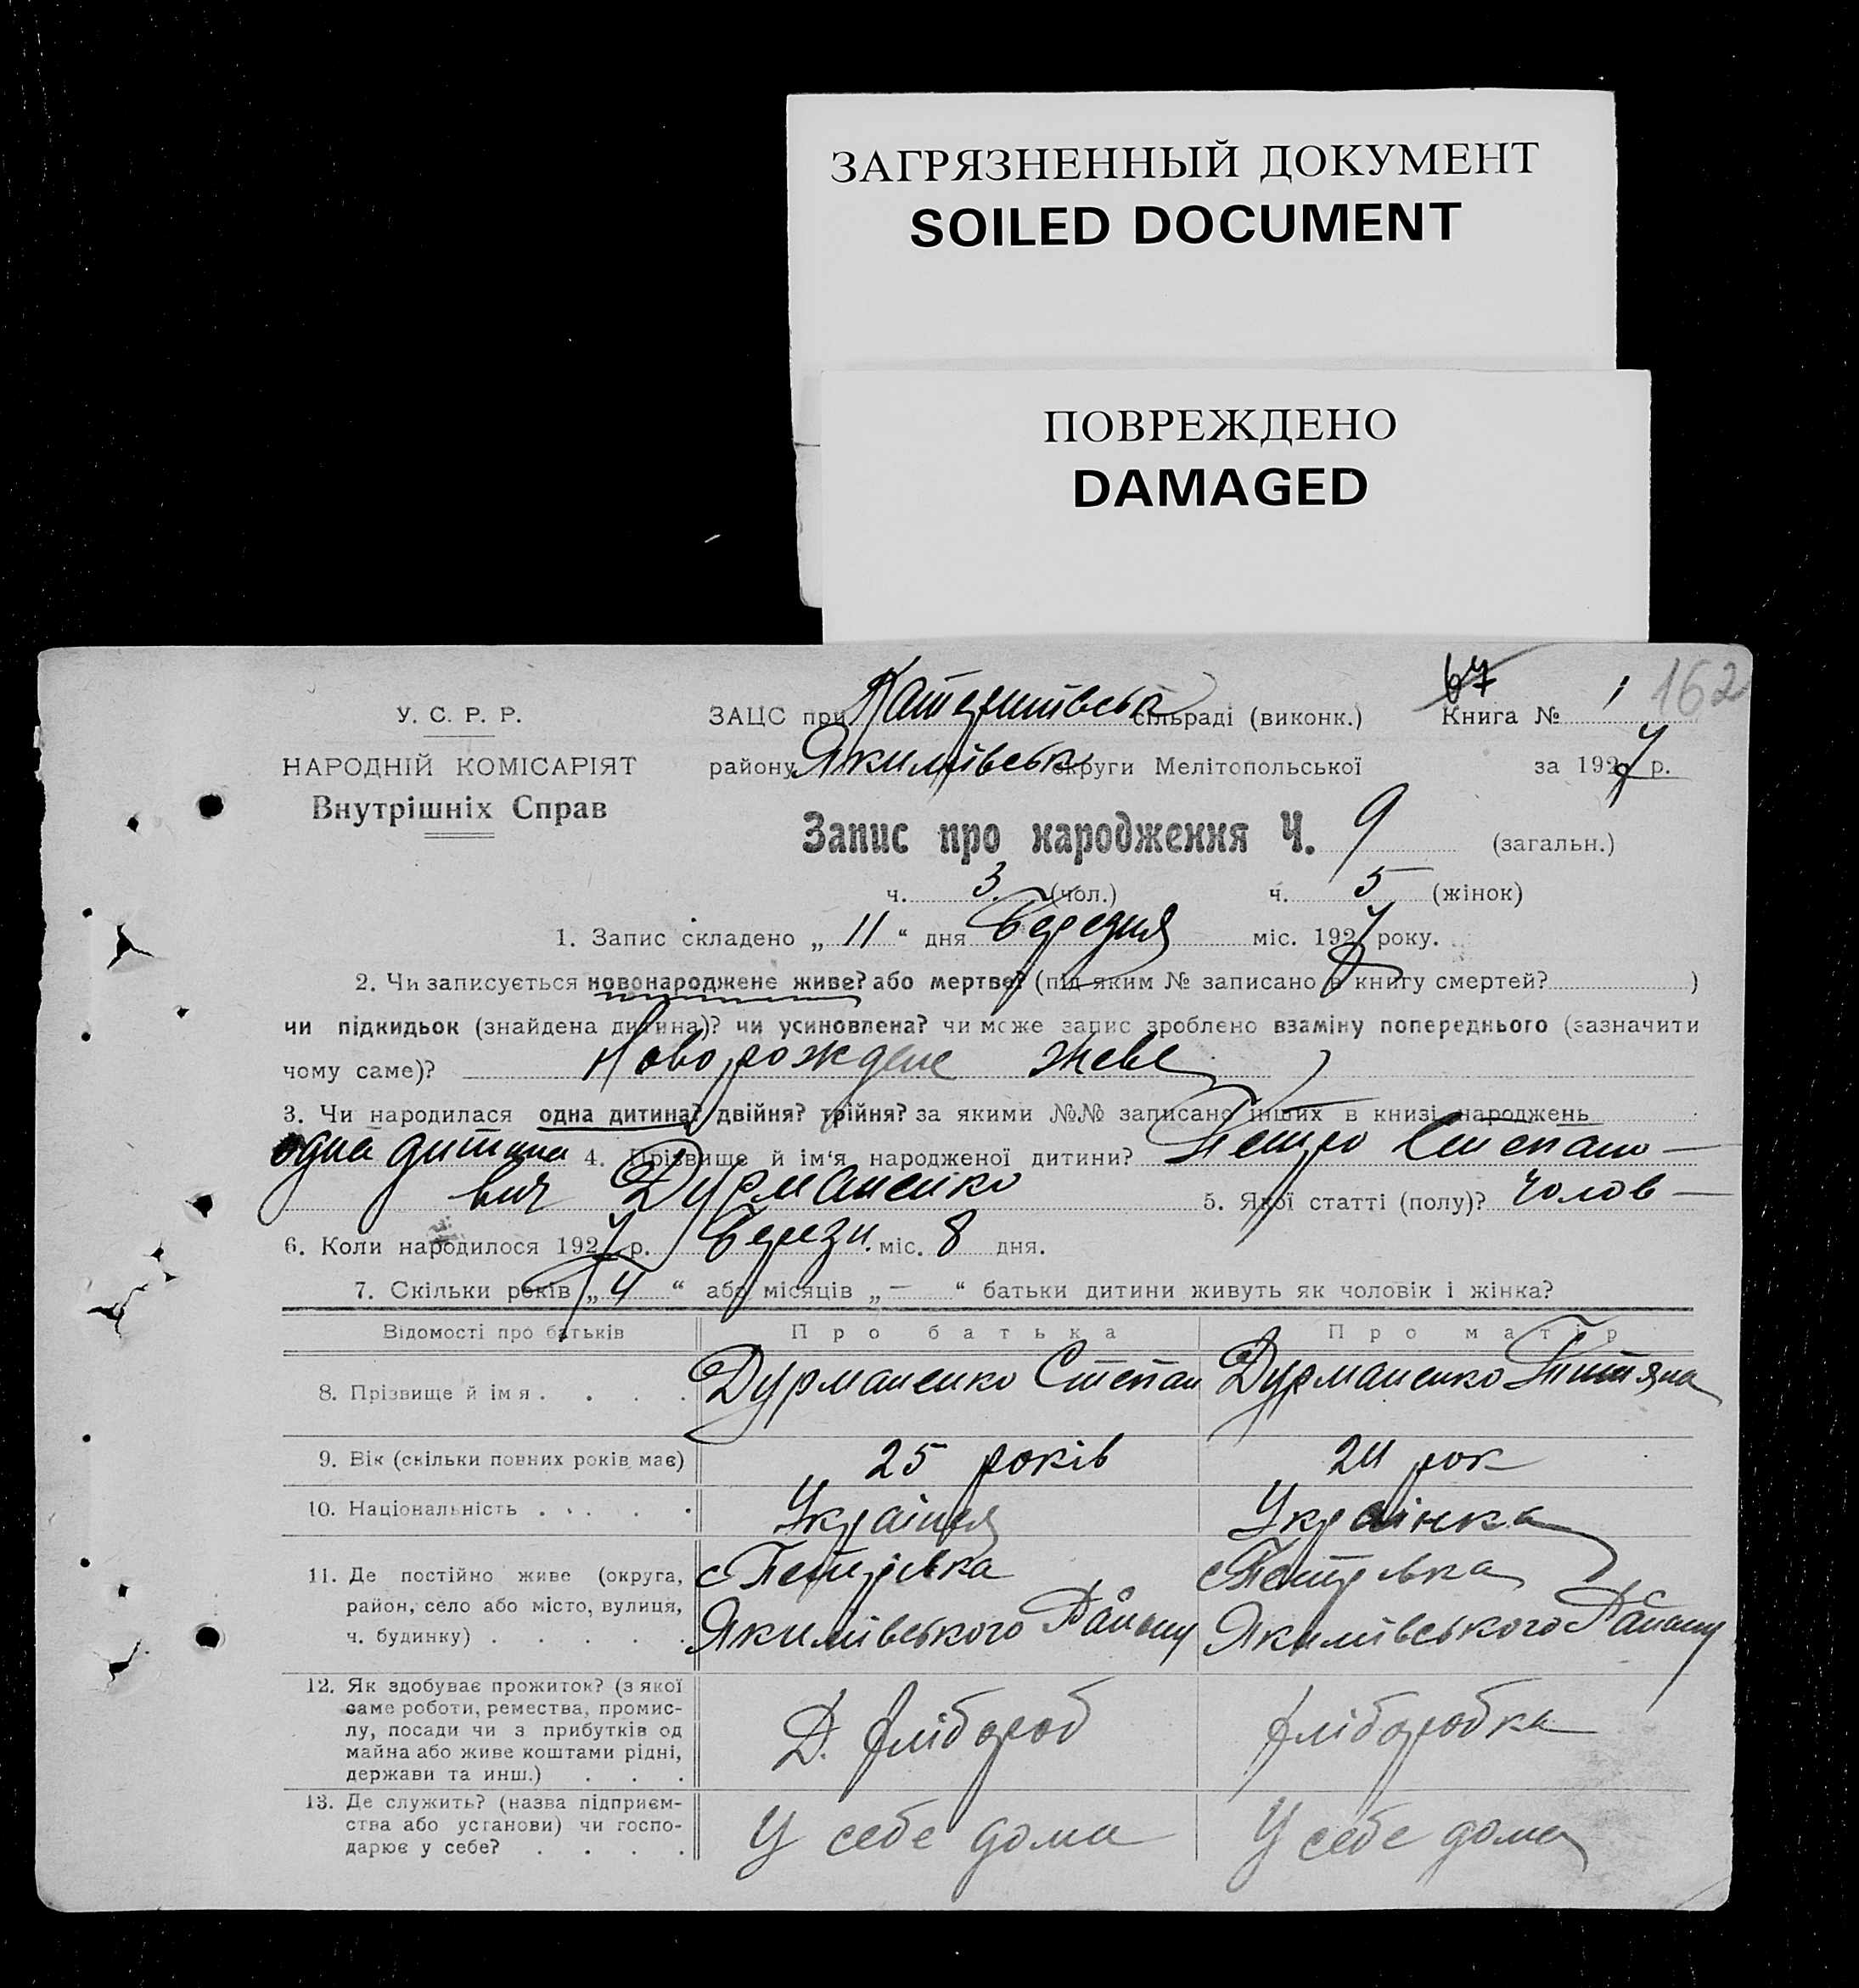 ЗАГРЯЗНЕННЫЙ ДОКУМЕНТ
SOILED DOCUMENT
ПОВРЕЖДЕНО
DAMAGED
67 162
У. С. Р. Р. ЗАЦС при сільраді (виконк.) Книга № 1
НАРОДНІЙ КОМІСАРІЯТ району Якимівськ округи Мелітопольської за 1927 р.
Внутрішніх Справ
Запис про народження Ч. 9 (загальн.)
ч. 3 (чол.) ч. 5 (жінок)
1. Запис складено „ 11 “ дня березня міс. 1927 року.
2. Чи записується новонароджене живе? або мертве? (під яким № записано в книгу смертей? )
чи підкидьок (знайдена дитина)? чи усиновлена? чи може запис зроблено взаміну попереднього (зазначити
чому саме)? Новорождене живе
3. Чи народилася одна дитина? двійня? трійня? за якими №№ записано інших в книзі народжень
одна дитина 4. Прізвище й ім‘я народженої дитини? Петро Степано-
вич Дурманенко 5. Якої статті (полу)? чолов-
6. Коли народилося 1927 р. Березн. міс. 8 дня.
7. Скільки років „ 4 “ або місяців „ — “ батьки дитини живуть як чоловік і жінка?
Відомості про батьків Про батька Про матір
8. Прізвище й імя . . . . Дурманенко Степан Дурманенко Титяна
9. Вік (скільки повних років має) 25 років 24 рок
10. Національність . . . . . Українка
11. Де постійно живе (округа, с Петрівка с Петрівка
район, село або місто, вулиця, Якимівського Району Якимівського Району
ч. будинку) . . . . . .
12. Як здобуває прожиток? (з якої
саме роботи, ремества, промис-
лу, посади чи з прибутків од Д. хлібороб хліборобка
майна або живе коштами рідні,
держави та инш.) . . .
13. Де служить? (назва підприєм-
ства або установи) чи госпо- У себе дома У себе дома
дарює у себе? . . . .